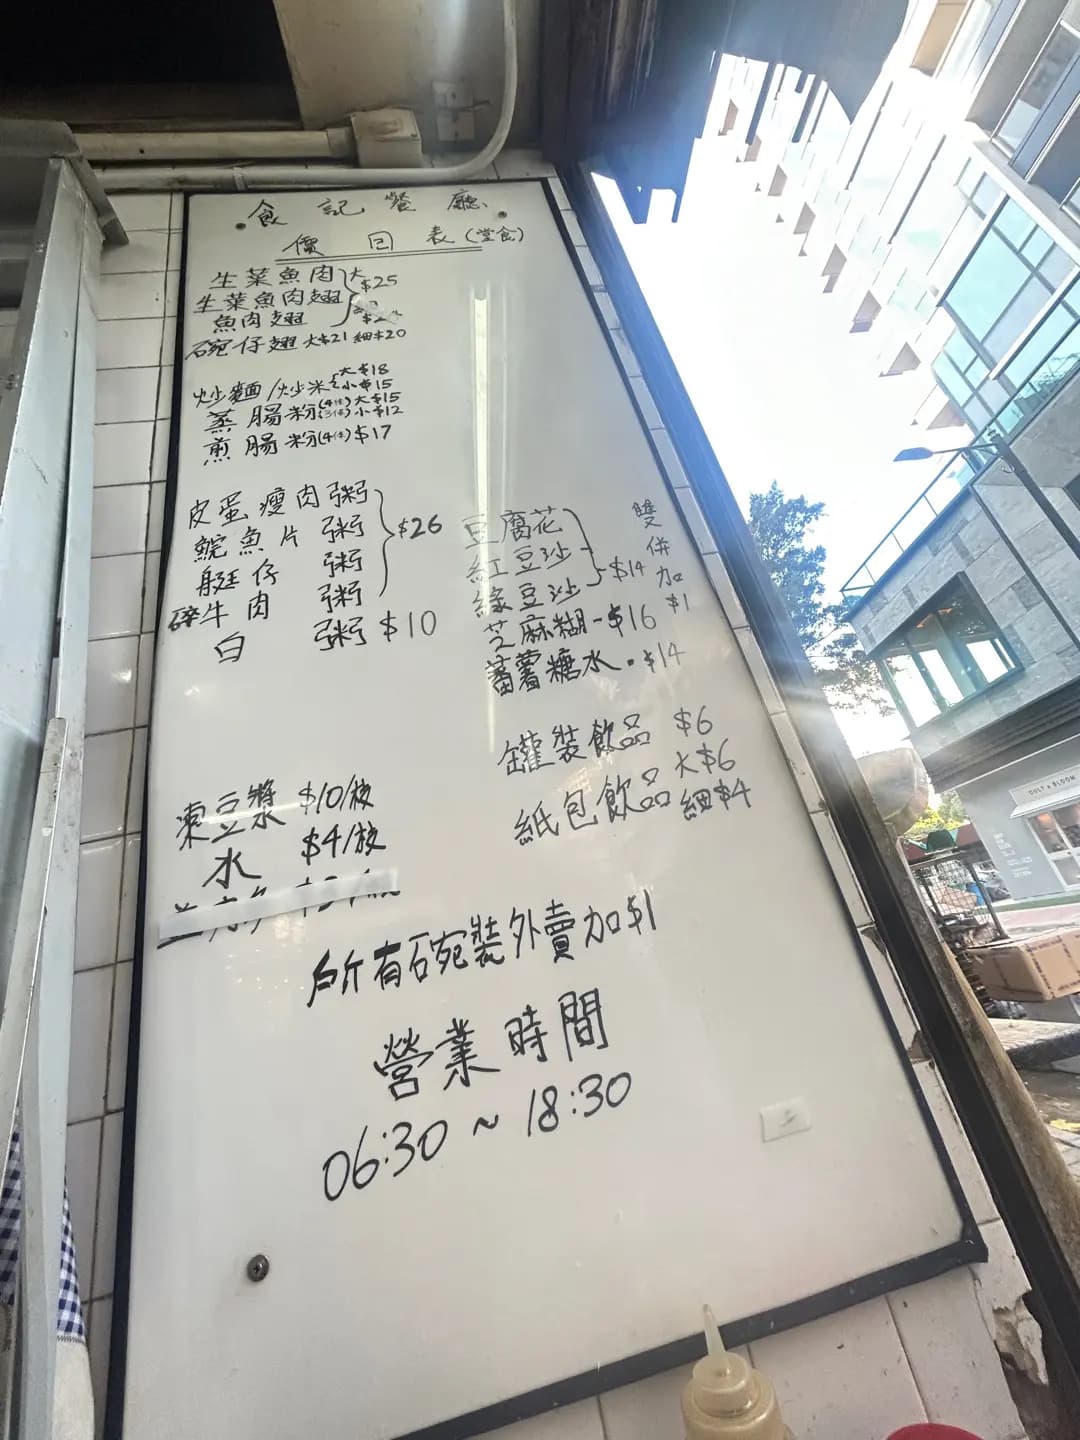 食記餐廳
價目表(堂食)
生菜魚肉
生菜魚肉翅
魚肉翅
大$25
碗仔翅 大$21 細$20
炒麵/炒米 大$18
小$15
蒸腸粉(4條)大$15
(3條)小$12
煎腸粉(4條)$17
皮蛋瘦肉粥
鯇魚片粥
艇仔粥
碎牛肉粥
$26
白粥 $10
豆腐花
紅豆沙
綠豆沙
$14
雙併加$1
芝麻糊-$16
蕃薯糖水.$14
罐裝飲品 $6
紙包飲品 大$6
細$4
凍豆漿 $10/枝
水 $4/枝
所有碗裝外賣加$1
營業時間
06:30~18:30
CULT & BLOOM